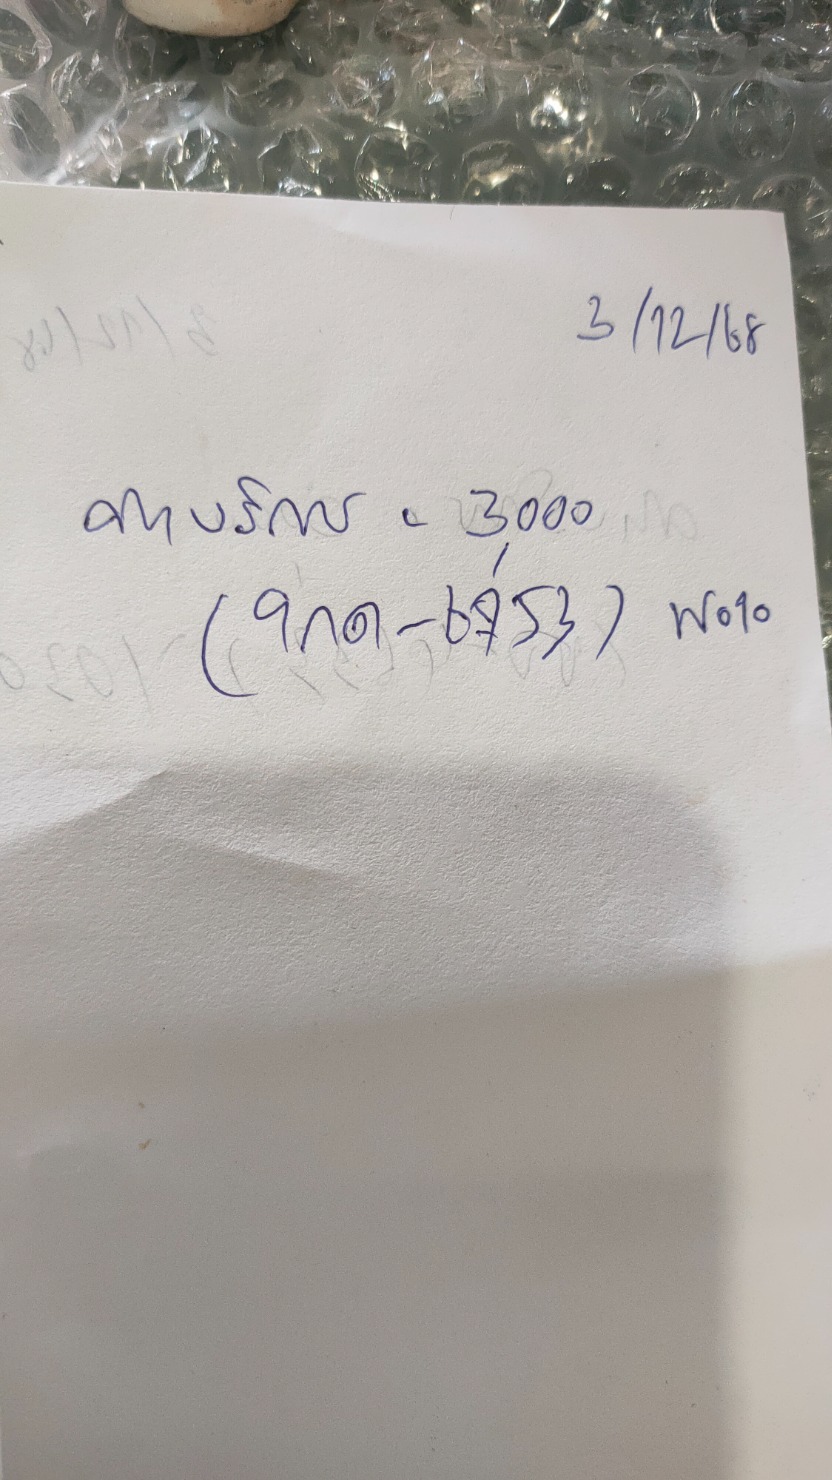 3/12/68
ค่าบริการ = 3,000
(9กด-6753) พ010